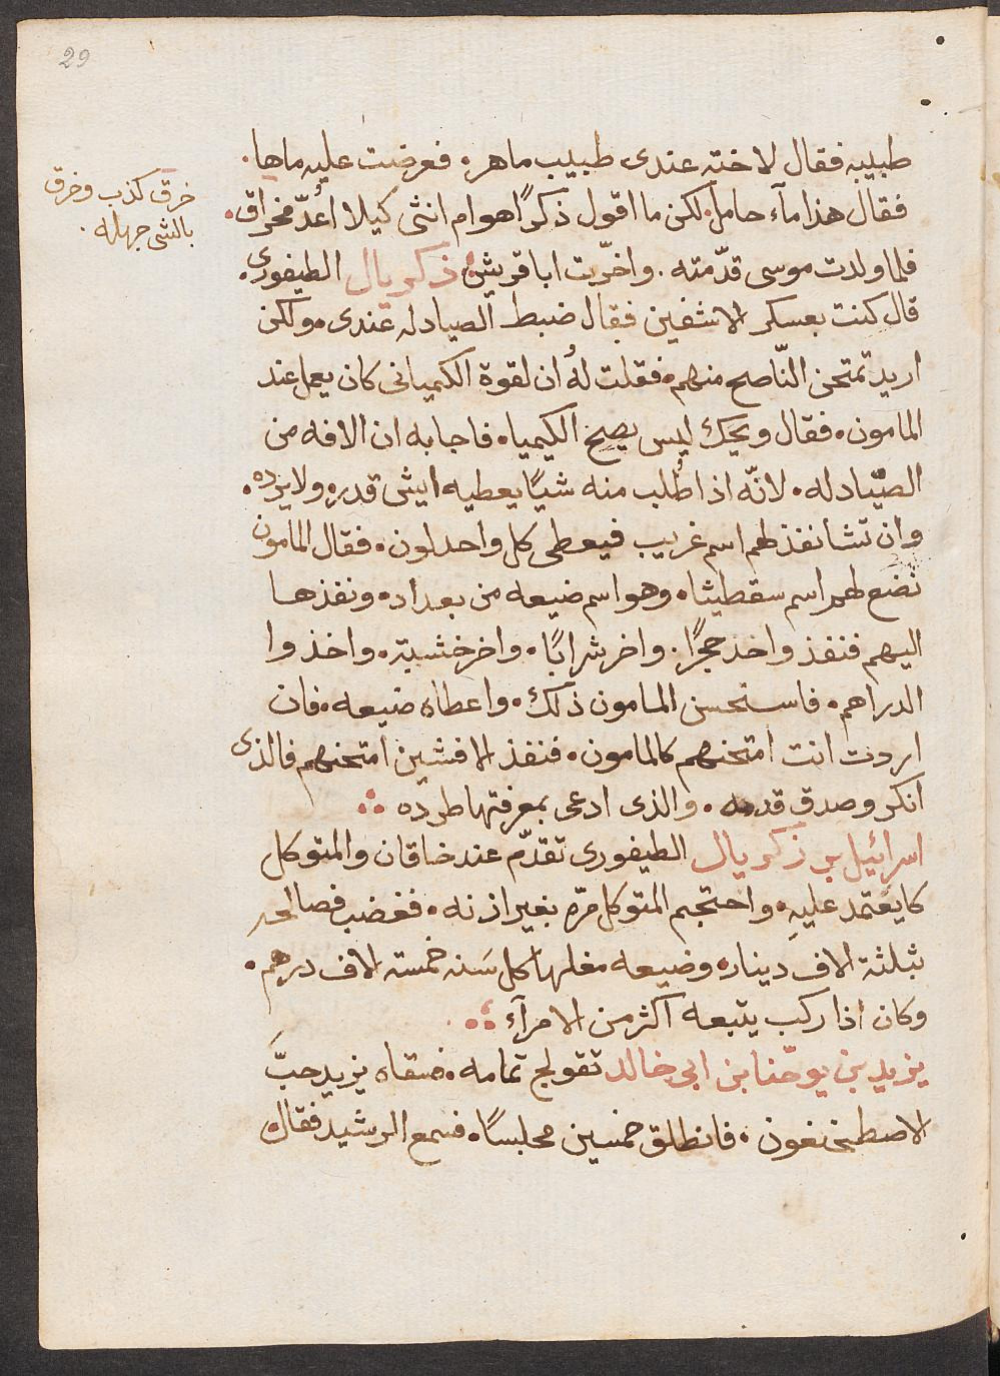 29
طبيبه فقال لاخته عندى طبيب ماهر. فعرضت عليه ماها.
فقال هذا مآء حامل. لكن ما اقول ذكرًا هو ام انثى كيلا اُعدّ مخراق.
خرق كذب وخرق
بالشى جهله.
فلما ولدت موسى قدّمته. واخرّت ابا قريش. ذكريال الطيفورى.
قال كنت بعسكر الاشفين فقال ضبط الصيادله عندى. ولكن
اريد تمتحن النّاصح منهم. فقلت لهُ ان لقوة الكميانى كان يعمل عند
المامون. فقال ويحك ليس يصح الكيمياه فاجابه ان الافه من
الصيّادله. لانّه اذا طُلب منه شيًا يعطيه ايش قدره ولا يرده.
وان تشا نفذ لهم اسم غريب فيعطى كل واحد لون. فقال المامون
نضع لهم اسم سقطيثا. وهو اسم ضيعه من بغداد. ونفذها
اليهم فنفذ واخد حجرًا. واخر شرابًا. واخر خشبة. واخذوا
الدراهم. فاستحسن المامون ذلك. واعطاه ضيعه. فان
اردت انت امتحنهم كالمامون. فنفذ الافشين امتحنهم فالذى
انكر وصدق قدمه. والذى ادعى بمعرفتها طرده
اسرائيل بن زكريال الطيفورى تقدّم عند خاقان والمتوكل
كا يعتمد عليهِ. واحتجم المتوكل مرّه بغير اذنه. فغضب فصالحه
بثلثة الاف دينار. وضيعه مغلها كل سَنه خمسة الاف درهم.
وكان اذا ركب يتبعه اكثر من الامرآء
يزيد بن يوحّنا بن ابى خالد تقولج تمامه. فسقاه يزيد حبَّ
الاصطمخيقون. فانطلق خمسين مجلسًا. فسمع الرشيد فقال